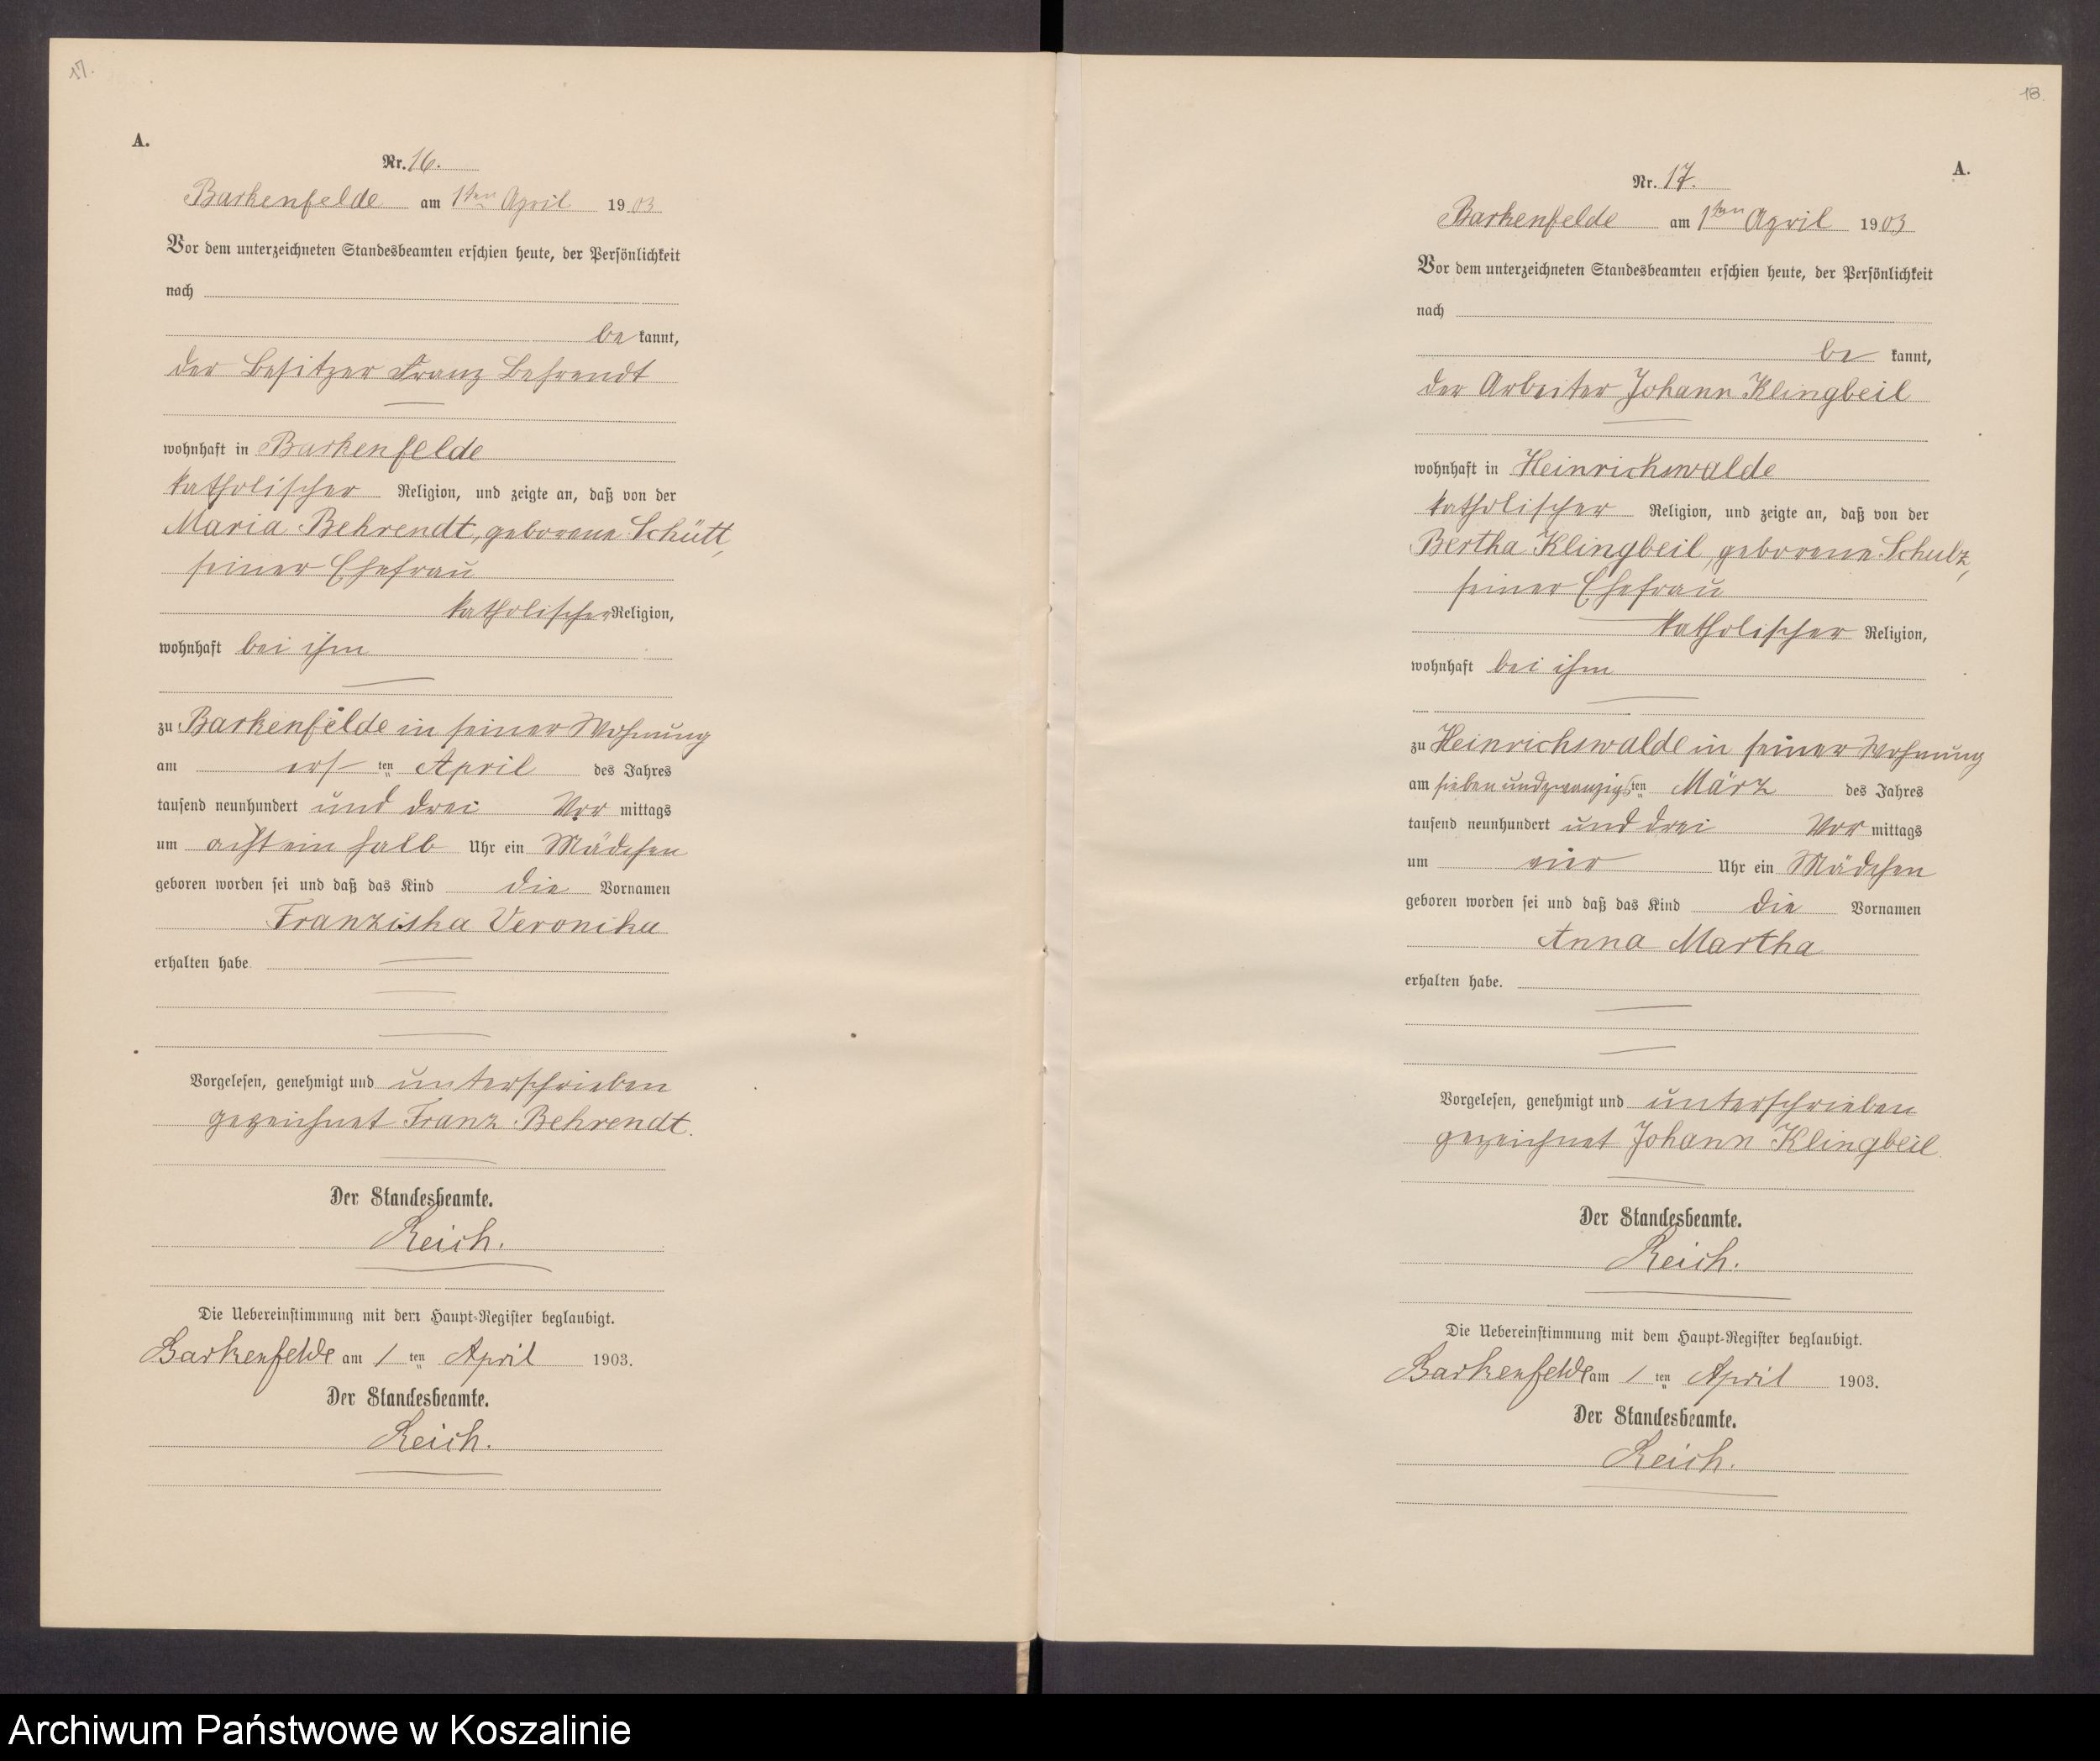 17.
A.
Nr. 16.
Barkenfelde am 1ten April 1903
Vor dem unterzeichneten Standesbeamten erschien heute, der Persönlichkeit
nach
be kannt,
der Besitzer Franz Behrendt
wohnhaft in Barkenfelde
katholischer Religion, und zeigte an, daß von der
Maria Behrendt, geborene Schütt,
seiner Ehefrau
katholischer Religion,
wohnhaft bei ihm
zu Barkenfelde in seiner Wohnung
am ersten April des Jahres
tausend neunhundert und drei Vor mittags
um acht ein halb Uhr ein Mädchen
geboren worden sei und daß das Kind die Vornamen
Franziska Veronika
erhalten habe.
Vorgelesen, genehmigt und unterschrieben
gezeichnet Franz Behrendt.
Der Standesbeamte.
Reich.
Die Uebereinstimmung mit dem Haupt-Register beglaubigt.
Barkenfelde am 1 ten April 1903.
Der Standesbeamte.
Reich.
18.
A.
Nr. 17.
Barkenfelde am 1ten April 1903
Vor dem unterzeichneten Standesbeamten erschien heute, der Persönlichkeit
nach
be kannt,
der Arbeiter Johann Klingbeil
wohnhaft in Heinrichswalde
katholischer Religion, und zeigte an, daß von der
Bertha Klingbeil, geborene Schulz,
seiner Ehefrau
katholischer Religion,
wohnhaft bei ihm
zu Heinrichswalde in seiner Wohnung
am siebenundzwanzigsten März des Jahres
tausend neunhundert und drei Vor mittags
um vier Uhr ein Mädchen
geboren worden sei und daß das Kind die Vornamen
Anna Martha
erhalten habe.
Vorgelesen, genehmigt und unterschrieben
gezeichnet Johann Klingbeil.
Der Standesbeamte.
Reich.
Die Uebereinstimmung mit dem Haupt-Register beglaubigt.
Barkenfelde am 1 ten April 1903.
Der Standesbeamte.
Reich.
Archiwum Państwowe w Koszalinie